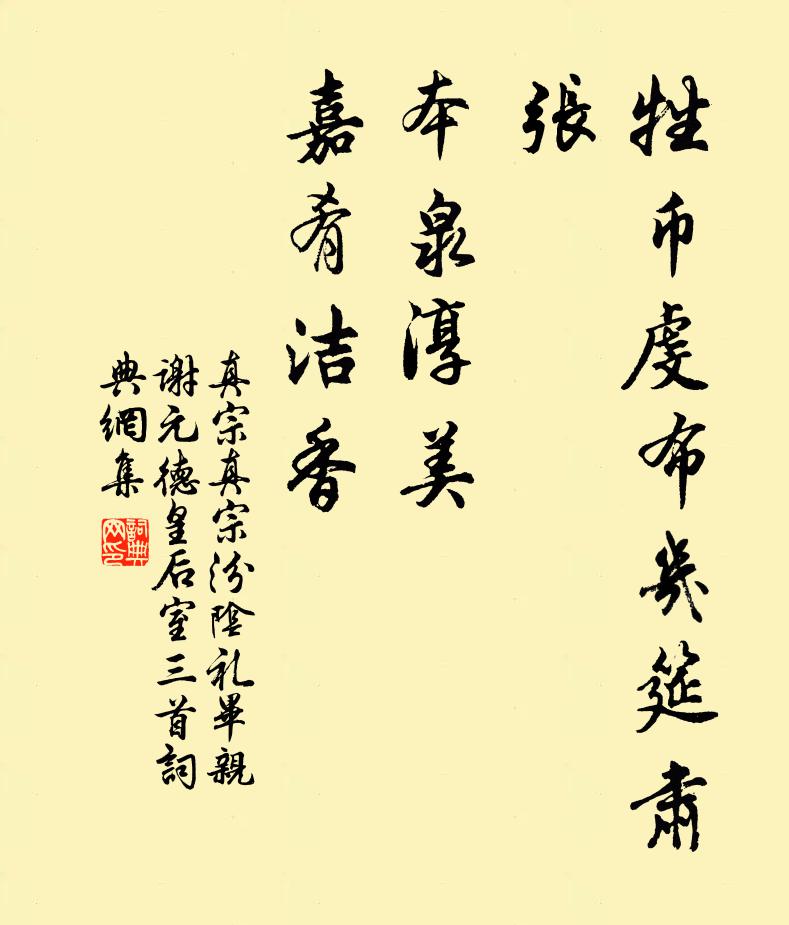 牲币虔布幾筵肅
張
本泉淳美
嘉肴洁香
真宗真宗汾陰礼畢親
謝元德皇后室三首詞
典網集
詞典
网印